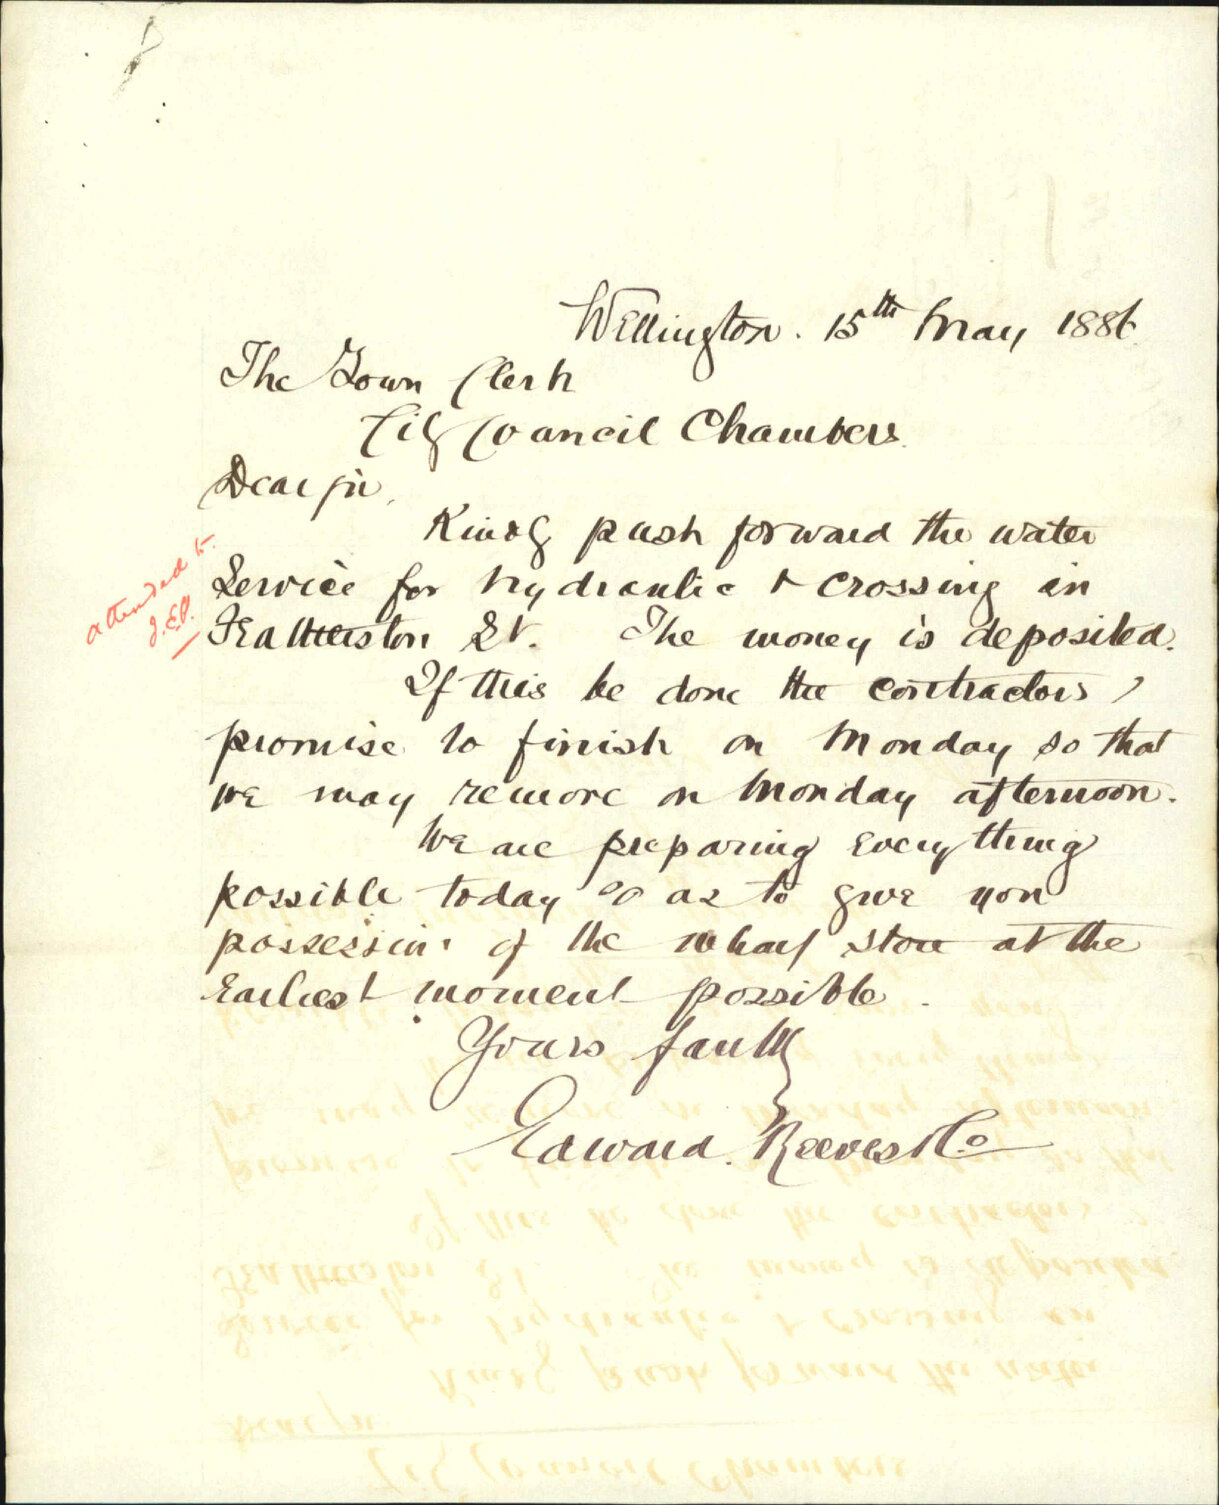 Wellington. 15th May 1886
The Town Clerk
City Council Chambers.
Dear Sir,
Kindly push forward the water
Service for hydraulic & crossing in
Featherston St. The money is deposited.
If this be done the contractors
promise to finish on Monday so that
we may remove on Monday afternoon.
We are preparing everything
possible today so as to give you
possession of the wharf store at the
Earliest moment possible.
Yours faithly
Edward Reeves & Co
attended to
J.E.P.